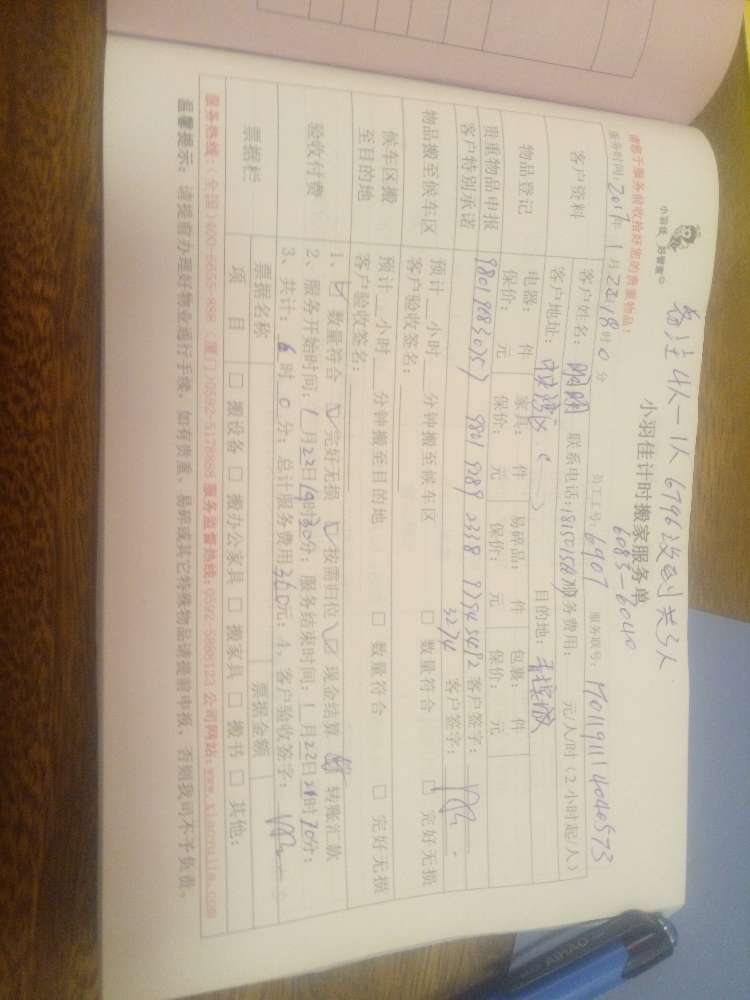 备注4人-1人 6796没到 共3人
小羽佳 好管家
小羽佳计时搬家服务单
6083-6040
请您于服务前收拾好您的贵重物品!
服务时间: 2017年1月22日18时0分 员工工号: 6907 服务联号:
客户资料 客户姓名: 联系电话: 服务费用: 元/人/时 (2小时起/人)
客户地址: 目的地:
物品登记 电器: 件 家具: 件 易碎品: 件 包裹: 件
保价: 元 保价: 元 保价: 元 保价: 元
贵重物品申报
客户特别承诺 客户签字:
3274 客户签字:
物品搬至候车区 预计__小时__分钟搬至候车区 □ 数量符合 □ 完好无损
客户验收签名:
候车区搬至目的地 预计__小时__分钟搬至目的地 □ 数量符合 □ 完好无损
客户验收签名:
验收付费 1、☑ 数量符合 ☑ 完好无损 ☑ 按需归位 ☑ 现金结算 转账汇款
2、服务开始时间: 1月22日19时30分; 服务结束时间: 1月22日
3、共计: 6时0分; 总计服务费用360元; 4、客户验收签字:
票据栏 票据名称 票据金额
项目 □ 搬设备 □ 搬办公家具 □ 搬家具 □ 搬书 □ 其他:
服务热线: (全国)400-6655-888 (厦门)0592-5178888 服务监督热线: 0592-5989123 公司网站: www.xiaoyujia.com
温馨提示: 请提前办理好物业通行手续, 如有贵重、易碎或其它特殊物品请提前申报, 否则我司不予负责。
AIHAO